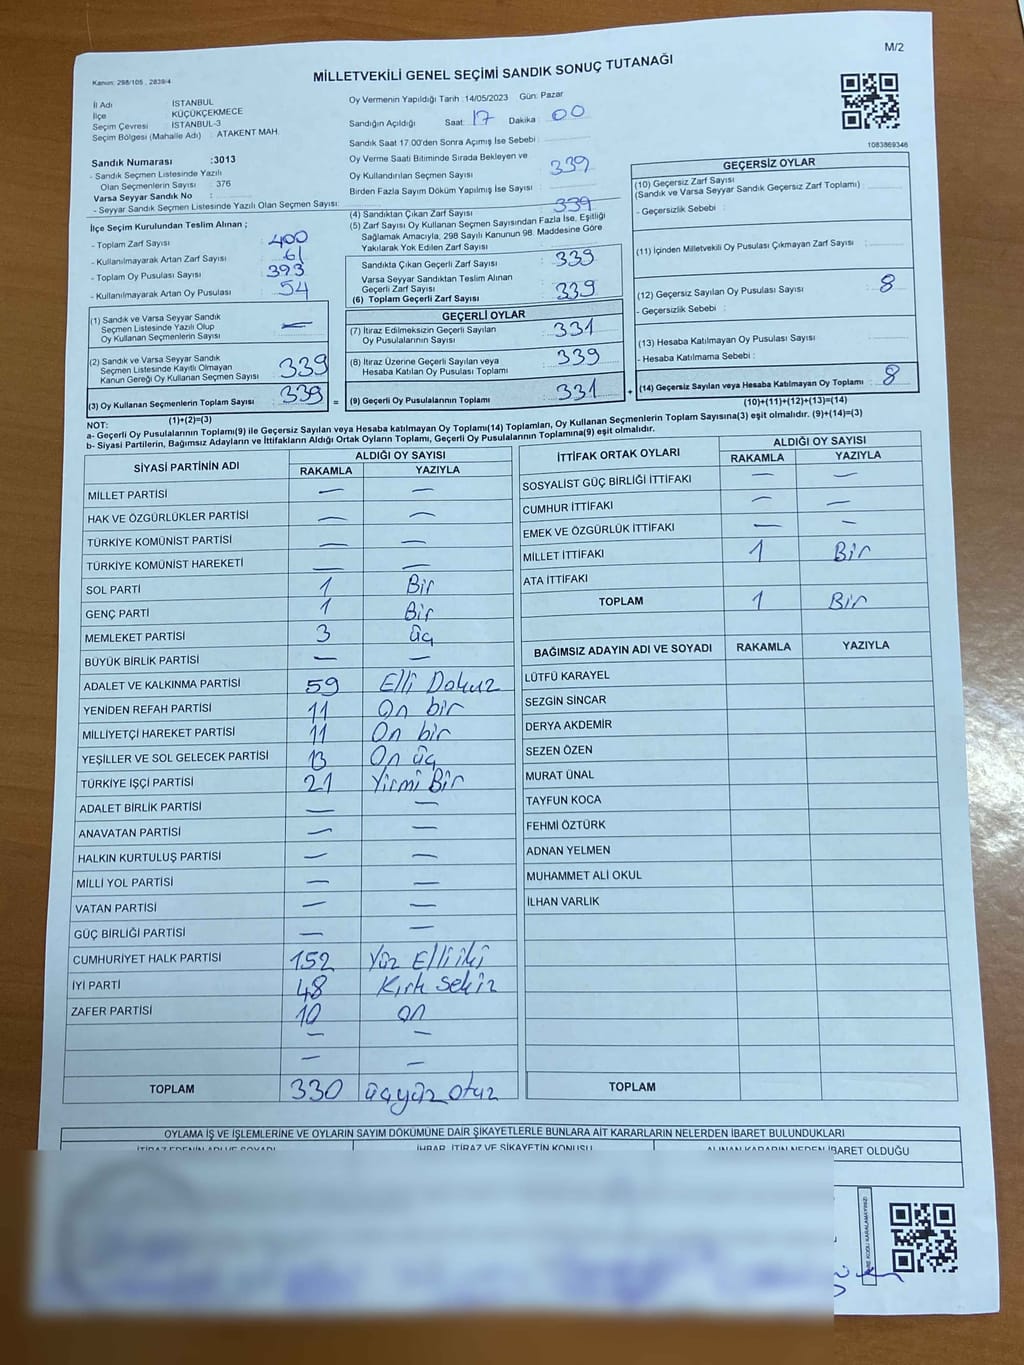 M/2
Kanun: 298/105 , 2839/4
MİLLETVEKİLİ GENEL SEÇİMİ SANDIK SONUÇ TUTANAĞI
İl Adı İSTANBUL
İlçe KÜÇÜKÇEKMECE
Seçim Çevresi İSTANBUL-3
Seçim Bölgesi (Mahalle Adı) : ATAKENT MAH.
Sandık Numarası :3013
- Sandık Seçmen Listesinde Yazılı
Olan Seçmenlerin Sayısı : 376
Varsa Seyyar Sandık No :
- Seyyar Sandık Seçmen Listesinde Yazılı Olan Seçmen Sayısı:
İlçe Seçim Kurulundan Teslim Alınan ;
- Toplam Zarf Sayısı : 400
- Kullanılmayarak Artan Zarf Sayısı : 61
- Toplam Oy Pusulası Sayısı : 393
- Kullanılmayarak Artan Oy Pusulası : 54
(1) Sandık ve Varsa Seyyar Sandık
Seçmen Listesinde Yazılı Olup : —
Oy Kullanan Seçmenlerin Sayısı
(2) Sandık ve Varsa Seyyar Sandık
Seçmen Listesinde Kayıtlı Olmayan
Kanun Gereği Oy Kullanan Seçmen Sayısı : 339
(3) Oy Kullanan Seçmenlerin Toplam Sayısı : 339
(1)+(2)=(3)
Oy Vermenin Yapıldığı Tarih :14/05/2023 Gün: Pazar
Sandığın Açıldığı Saat 17 Dakika 00
Sandık Saat 17.00'den Sonra Açımış İse Sebebi :
Oy Verme Saati Bitiminde Sırada Bekleyen ve
Oy Kullandırılan Seçmen Sayısı : 339
Birden Fazla Sayım Döküm Yapılmış İse Sayısı :
(4) Sandıktan Çıkan Zarf Sayısı : 339
(5) Zarf Sayısı Oy Kullanan Seçmen Sayısından Fazla İse, Eşitliği
Sağlamak Amacıyla, 298 Sayılı Kanunun 98. Maddesine Göre
Yakılarak Yok Edilen Zarf Sayısı :
Sandıkta Çıkan Geçerli Zarf Sayısı : 339
Varsa Seyyar Sandıktan Teslim Alınan
Geçerli Zarf Sayısı :
(6) Toplam Geçerli Zarf Sayısı : 339
GEÇERLİ OYLAR
(7) İtiraz Edilmeksizin Geçerli Sayılan
Oy Pusulalarının Sayısı : 331
(8) İtiraz Üzerine Geçerli Sayılan veya
Hesaba Katılan Oy Pusulası Toplamı : 339
= (9) Geçerli Oy Pusulalarının Toplamı : 331 +
1083869346
GEÇERSİZ OYLAR
(10) Geçersiz Zarf Sayısı
(Sandık ve Varsa Seyyar Sandık Geçersiz Zarf Toplamı) :
- Geçersizlik Sebebi :
(11) İçinden Milletvekili Oy Pusulası Çıkmayan Zarf Sayısı :
(12) Geçersiz Sayılan Oy Pusulası Sayısı : 8
- Geçersizlik Sebebi :
(13) Hesaba Katılmayan Oy Pusulası Sayısı :
- Hesaba Katılmama Sebebi :
(14) Geçersiz Sayılan veya Hesaba Katılmayan Oy Toplamı : 8
(10)+(11)+(12)+(13)=(14)
NOT:
a- Geçerli Oy Pusulalarının Toplamı(9) ile Geçersiz Sayılan veya Hesaba katılmayan Oy Toplamı(14) Toplamları, Oy Kullanan Seçmenlerin Toplam Sayısına(3) eşit olmalıdır. (9)+(14)=(3)
b- Siyasi Partilerin, Bağımsız Adayların ve İttifakların Aldığı Ortak Oyların Toplamı, Geçerli Oy Pusulalarının Toplamına(9) eşit olmalıdır.
SİYASİ PARTİNİN ADI ALDIĞI OY SAYISI
RAKAMLA YAZIYLA
MİLLET PARTİSİ — —
HAK VE ÖZGÜRLÜKLER PARTİSİ — —
TÜRKİYE KOMÜNİST PARTİSİ — —
TÜRKİYE KOMÜNİST HAREKETİ — —
SOL PARTİ 1 Bir
GENÇ PARTİ 1 Bir
MEMLEKET PARTİSİ 3 üç
BÜYÜK BİRLİK PARTİSİ — —
ADALET VE KALKINMA PARTİSİ 59 Elli Dokuz
YENİDEN REFAH PARTİSİ 11 On bir
MİLLİYETÇİ HAREKET PARTİSİ 11 On bir
YEŞİLLER VE SOL GELECEK PARTİSİ 13 On üç
TÜRKİYE İŞÇİ PARTİSİ 21 Yirmi Bir
ADALET BİRLİK PARTİSİ — —
ANAVATAN PARTİSİ — —
HALKIN KURTULUŞ PARTİSİ — —
MİLLİ YOL PARTİSİ — —
VATAN PARTİSİ — —
GÜÇ BİRLİĞİ PARTİSİ — —
CUMHURİYET HALK PARTİSİ 152 Yüz Elli iki
İYİ PARTİ 48 Kırk Sekiz
ZAFER PARTİSİ 10 on
— —
— —
TOPLAM 330 üçyüz otuz
İTTİFAK ORTAK OYLARI ALDIĞI OY SAYISI
RAKAMLA YAZIYLA
SOSYALİST GÜÇ BİRLİĞİ İTTİFAKI — —
CUMHUR İTTİFAKI — —
EMEK VE ÖZGÜRLÜK İTTİFAKI — —
MİLLET İTTİFAKI 1 Bir
ATA İTTİFAKI
TOPLAM 1 Bir
BAĞIMSIZ ADAYIN ADI VE SOYADI RAKAMLA YAZIYLA
LÜTFÜ KARAYEL
SEZGİN SİNCAR
DERYA AKDEMİR
SEZEN ÖZEN
MURAT ÜNAL
TAYFUN KOCA
FEHMİ ÖZTÜRK
ADNAN YELMEN
MUHAMMET ALİ OKUL
İLHAN VARLIK
TOPLAM
OYLAMA İŞ VE İŞLEMLERİNE VE OYLARIN SAYIM DÖKÜMÜNE DAİR ŞİKAYETLERLE BUNLARA AİT KARARLARIN NELERDEN İBARET BULUNDUKLARI
İTİRAZ EDENİN ADI VE SOYADI İHBAR, İTİRAZ VE ŞİKAYETİN KONUSU ALINAN KARARIN NEDEN İBARET OLDUĞU